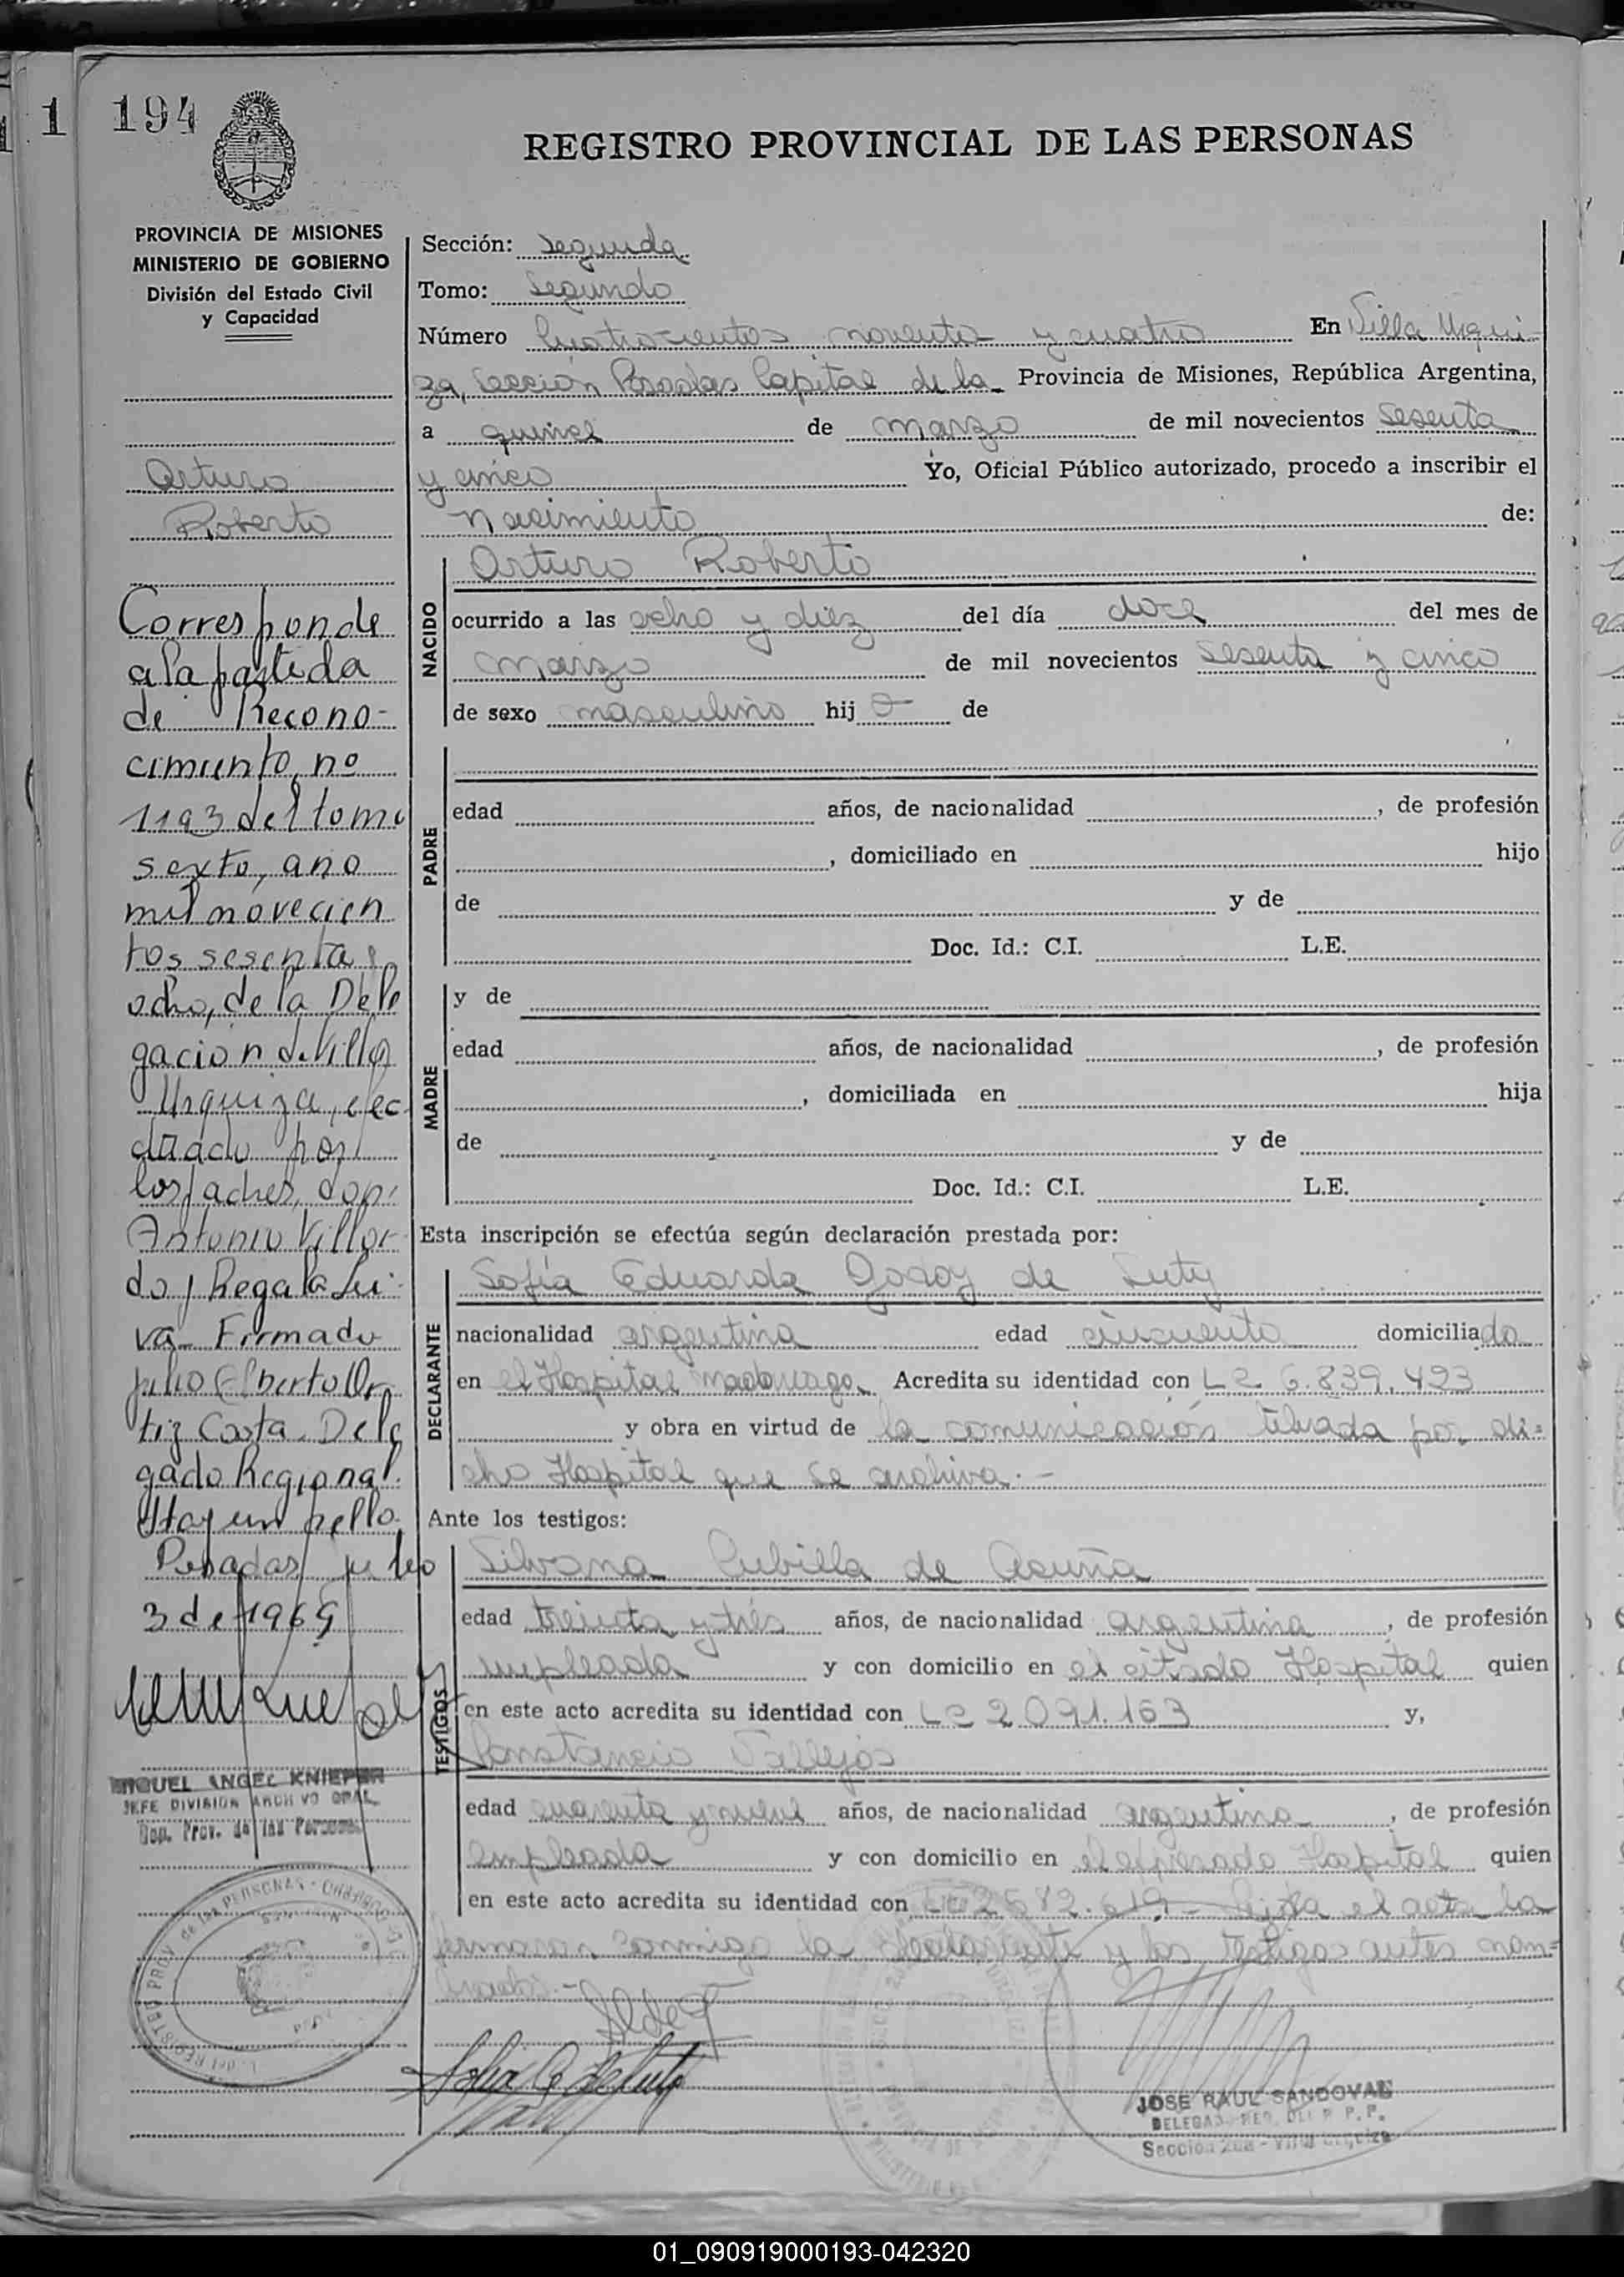 1 194
REGISTRO PROVINCIAL DE LAS PERSONAS
PROVINCIA DE MISIONES
MINISTERIO DE GOBIERNO
División del Estado Civil
y Capacidad
Arturo
Roberto
Corresponde
a la partida
de Recono-
cimiento, nº
1193 del tomo
sexto, año
mil novecien
tos sesenta y
ocho, de la Dele
gación de Villa
Urquiza, efec
tuado por
los padres, don
Antonio Villor
do y Regala
va Firmado
Julio Elberto Or
tiz Costa. Dele
gado Regional.
Hay un sello.
Posadas, julio
3 de 1969
MIGUEL ANGEL KNIEPER
JEFE DIVISION ARCHIVO GRAL.
Reg. Prov. de las Personas
Sección: Segunda
Tomo: Segundo
Número Cuatrocientos noventa y cuatro En Villa Urqui-
za, Sección Posadas Capital de la Provincia de Misiones, República Argentina,
a quince de marzo de mil novecientos sesenta
y cinco Yo, Oficial Público autorizado, procedo a inscribir el
nacimiento de:
NACIDO
Arturo Roberto
ocurrido a las ocho y diez del día doce del mes de
marzo de mil novecientos sesenta y cinco
de sexo masculino hijo de
PADRE
edad años, de nacionalidad , de profesión
, domiciliado en hijo
de y de
Doc. Id.: C.I. L.E.
MADRE
y de
edad años, de nacionalidad , de profesión
, domiciliada en hija
de y de
Doc. Id.: C.I. L.E.
Esta inscripción se efectúa según declaración prestada por:
DECLARANTE
Sofía Eduarda Godoy de Suty
nacionalidad argentina edad cincuenta domiciliada
en el Hospital Madariaga. Acredita su identidad con L C. 6.839.493
y obra en virtud de la comunicación librada por di-
cho Hospital que se archiva.-
Ante los testigos:
TESTIGOS
Silvana Cubilla de Acuña
edad treinta y tres años, de nacionalidad argentina , de profesión
empleada y con domicilio en el citado Hospital quien
en este acto acredita su identidad con LC 2.091.163 y,
Constancia Vallejos
edad cuarenta y nueve años, de nacionalidad argentina , de profesión
empleada y con domicilio en el expresado Hospital quien
en este acto acredita su identidad con LC 2572.619 - Leída el acta la
firmaron conmigo la declarante y los testigos antes nom-
brados.-
JOSE RAUL SANDOVAL
DELEGADO REG. DEL R. P. P.
Sección 2da - Villa Urquiza
01_090919000193-042320